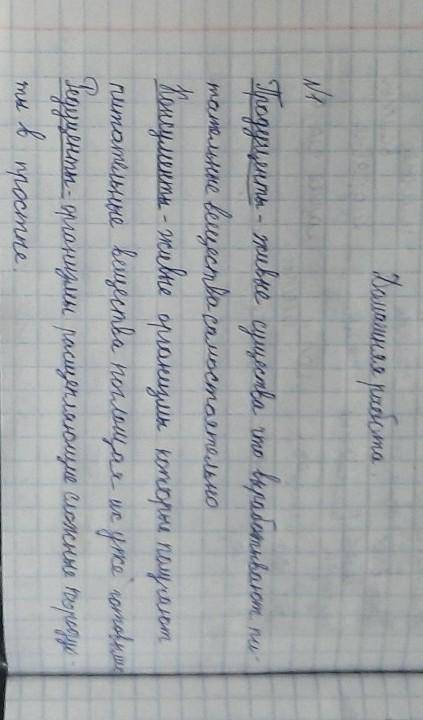 Домашняя работа
№1
Продуценты - живые существа что вырабатывают пи-
тательные вещества самостоятельно
Консументы - живые организмы которые получают
питательные вещества поглощая их уже готовыми
Редуценты - организмы расщепляющие сложные продук-
ты в простые.